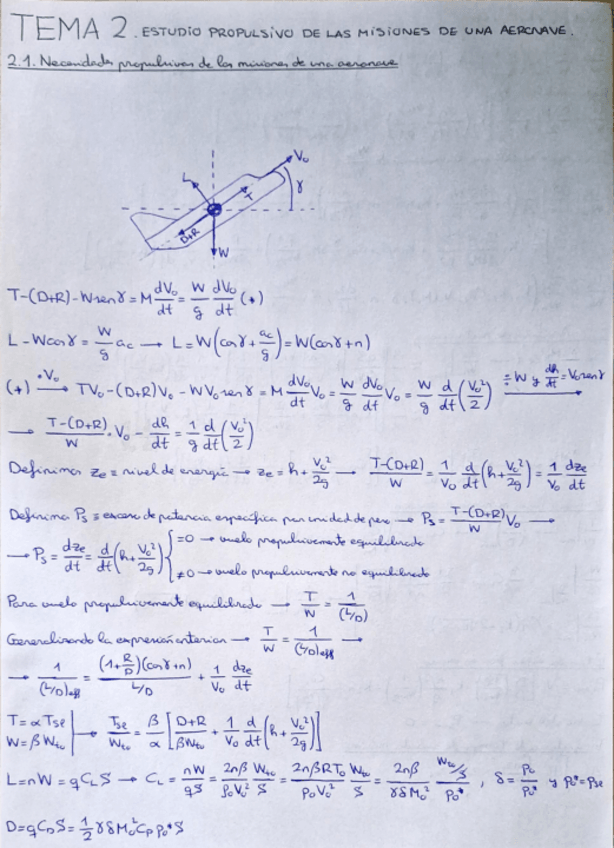 TEMA 2. ESTUDIO PROPULSIVO DE LAS MISIONES DE UNA AERONAVE.
2.1. Necesidades propulsivas de las misiones de una aeronave
V₀
L
γ
T
D+R
W
T-(D+R)-W sen γ = M dV₀/dt = W/g dV₀/dt (*)
L - W cos γ = W/g a_c → L = W(cos γ + a_c/g) = W(cos γ + n)
(*) ·V₀→ TV₀-(D+R)V₀ - WV₀ sen γ = M dV₀/dt V₀ = W/g dV₀/dt V₀ = W/g d/dt(V₀²/2) ÷W y dh/dt = V₀ sen γ →
→ T-(D+R)/W · V₀ - dh/dt = 1/g d/dt(V₀²/2)
Definimos z_e ≡ nivel de energía → z_e = h + V₀²/2g → T-(D+R)/W = 1/V₀ d/dt(h + V₀²/2g) = 1/V₀ dz_e/dt
Definimos P_s ≡ exceso de potencia específica por unidad de peso → P_s = T-(D+R)/W V₀ →
→ P_s = dz_e/dt = d/dt(h + V₀²/2g) { =0 → vuelo propulsivamente equilibrado
≠0 → vuelo propulsivamente no equilibrado
Para vuelo propulsivamente equilibrado → T/W = 1/(L/D)
Generalizando la expresión anterior → T/W = 1/(L/D)eff →
→ 1/(L/D)eff = (1+R/D)(cos γ + n)/L/D + 1/V₀ dz_e/dt
T = α T_SL
W = β W_to | → T_SL/W_to = β/α [D+R/βW_to + 1/V₀ d/dt(h + V₀²/2g)]
L = nW = qC_L S → C_L = nW/qS = 2nβ/ρ₀V₀² W_to/S = 2nβRT₀/p₀V₀² W_to/S = 2nβ/γδM₀² W_to/S/p₀* , δ = p₀/p₀* y p₀* = p_SL
D = qC_D S = 1/2 γδM₀²C_D p₀* S